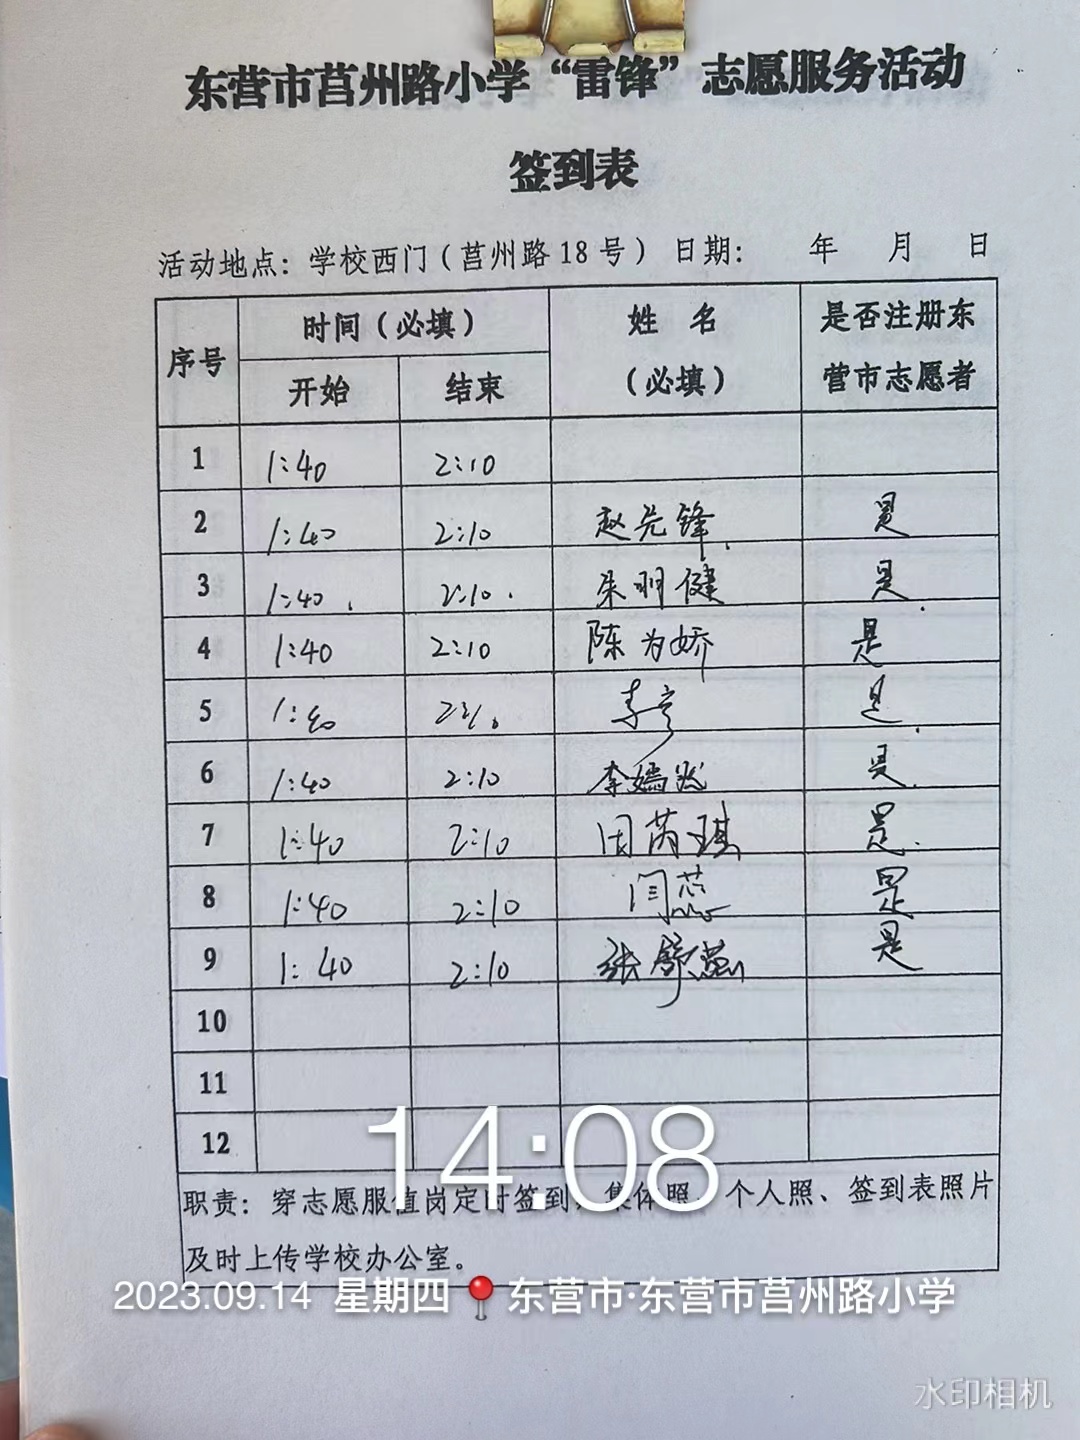 东营市莒州路小学“雷锋”志愿服务活动
签到表
活动地点：学校西门（莒州路18号） 日期： 年 月 日
序号 时间（必填） 姓 名（必填） 是否注册东营市志愿者
开始 结束
1 1:40 2:10
2 1:40 2:10 赵先锋 是
3 1:40 2:10 朱明健 是
4 1:40 2:10 陈为娇 是
5 1:40 李 是
6 1:40 2:10 李嫣然 是
7 1:40 2:10 田芮琪 是
8 1:40 2:10 闫蕊 是
9 1:40 2:10 张 是
10
11
12
14:08
职责：穿志愿服值岗定时签到，集体照、个人照、签到表照片
及时上传学校办公室。
2023.09.14 星期四 东营市·东营市莒州路小学
水印相机